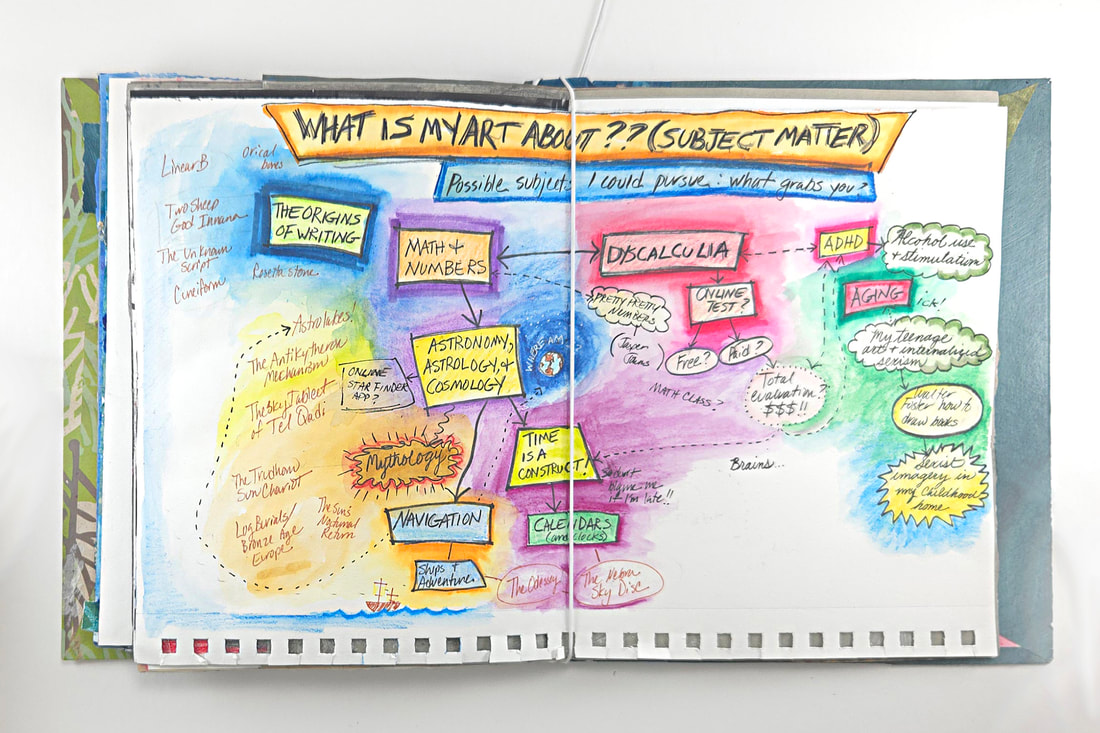 WHAT IS MY ART ABOUT?? (SUBJECT MATTER)
Possible subjects I could pursue: what grabs you?
Linear B
Orical
bones
Two Sheep
God Innana
The Unknown
Script
Cuneiform
THE ORIGINS
OF WRITING
Rosetta stone
MATH +
NUMBERS
DYSCALCULIA
ADHD
Alcohol use
+ stimulation
ONLINE
TEST?
Free?
Paid?
PRETTY PRETTY
NUMBERS
(Jasper
Johns)
MATH CLASS?
Total
evaluation?
$$$!!
AGING
ick!
My teenage
art + internalized
sexism
Walter
Foster how to
draw books
Sexist
imagery in
my childhood
home
Brains...
ASTRONOMY,
ASTROLOGY, +
COSMOLOGY
WHERE AM
ONLINE
STAR FINDER
APP?
Astrolabes!
The Antikythera
Mechanism
The Sky Tablet
of Tel Qadi
The Trudholm
Sun Chariot
Log Burials/
Bronze Age
Europe
The Sun's
Nocturnal
Return
Mythology
TIME
IS A
CONSTRUCT!
So don't
blame me
if I'm late!!
NAVIGATION
CALENDARS
(and clocks)
Ships +
Adventure
The Odyssey
The Nebra
Sky Disc